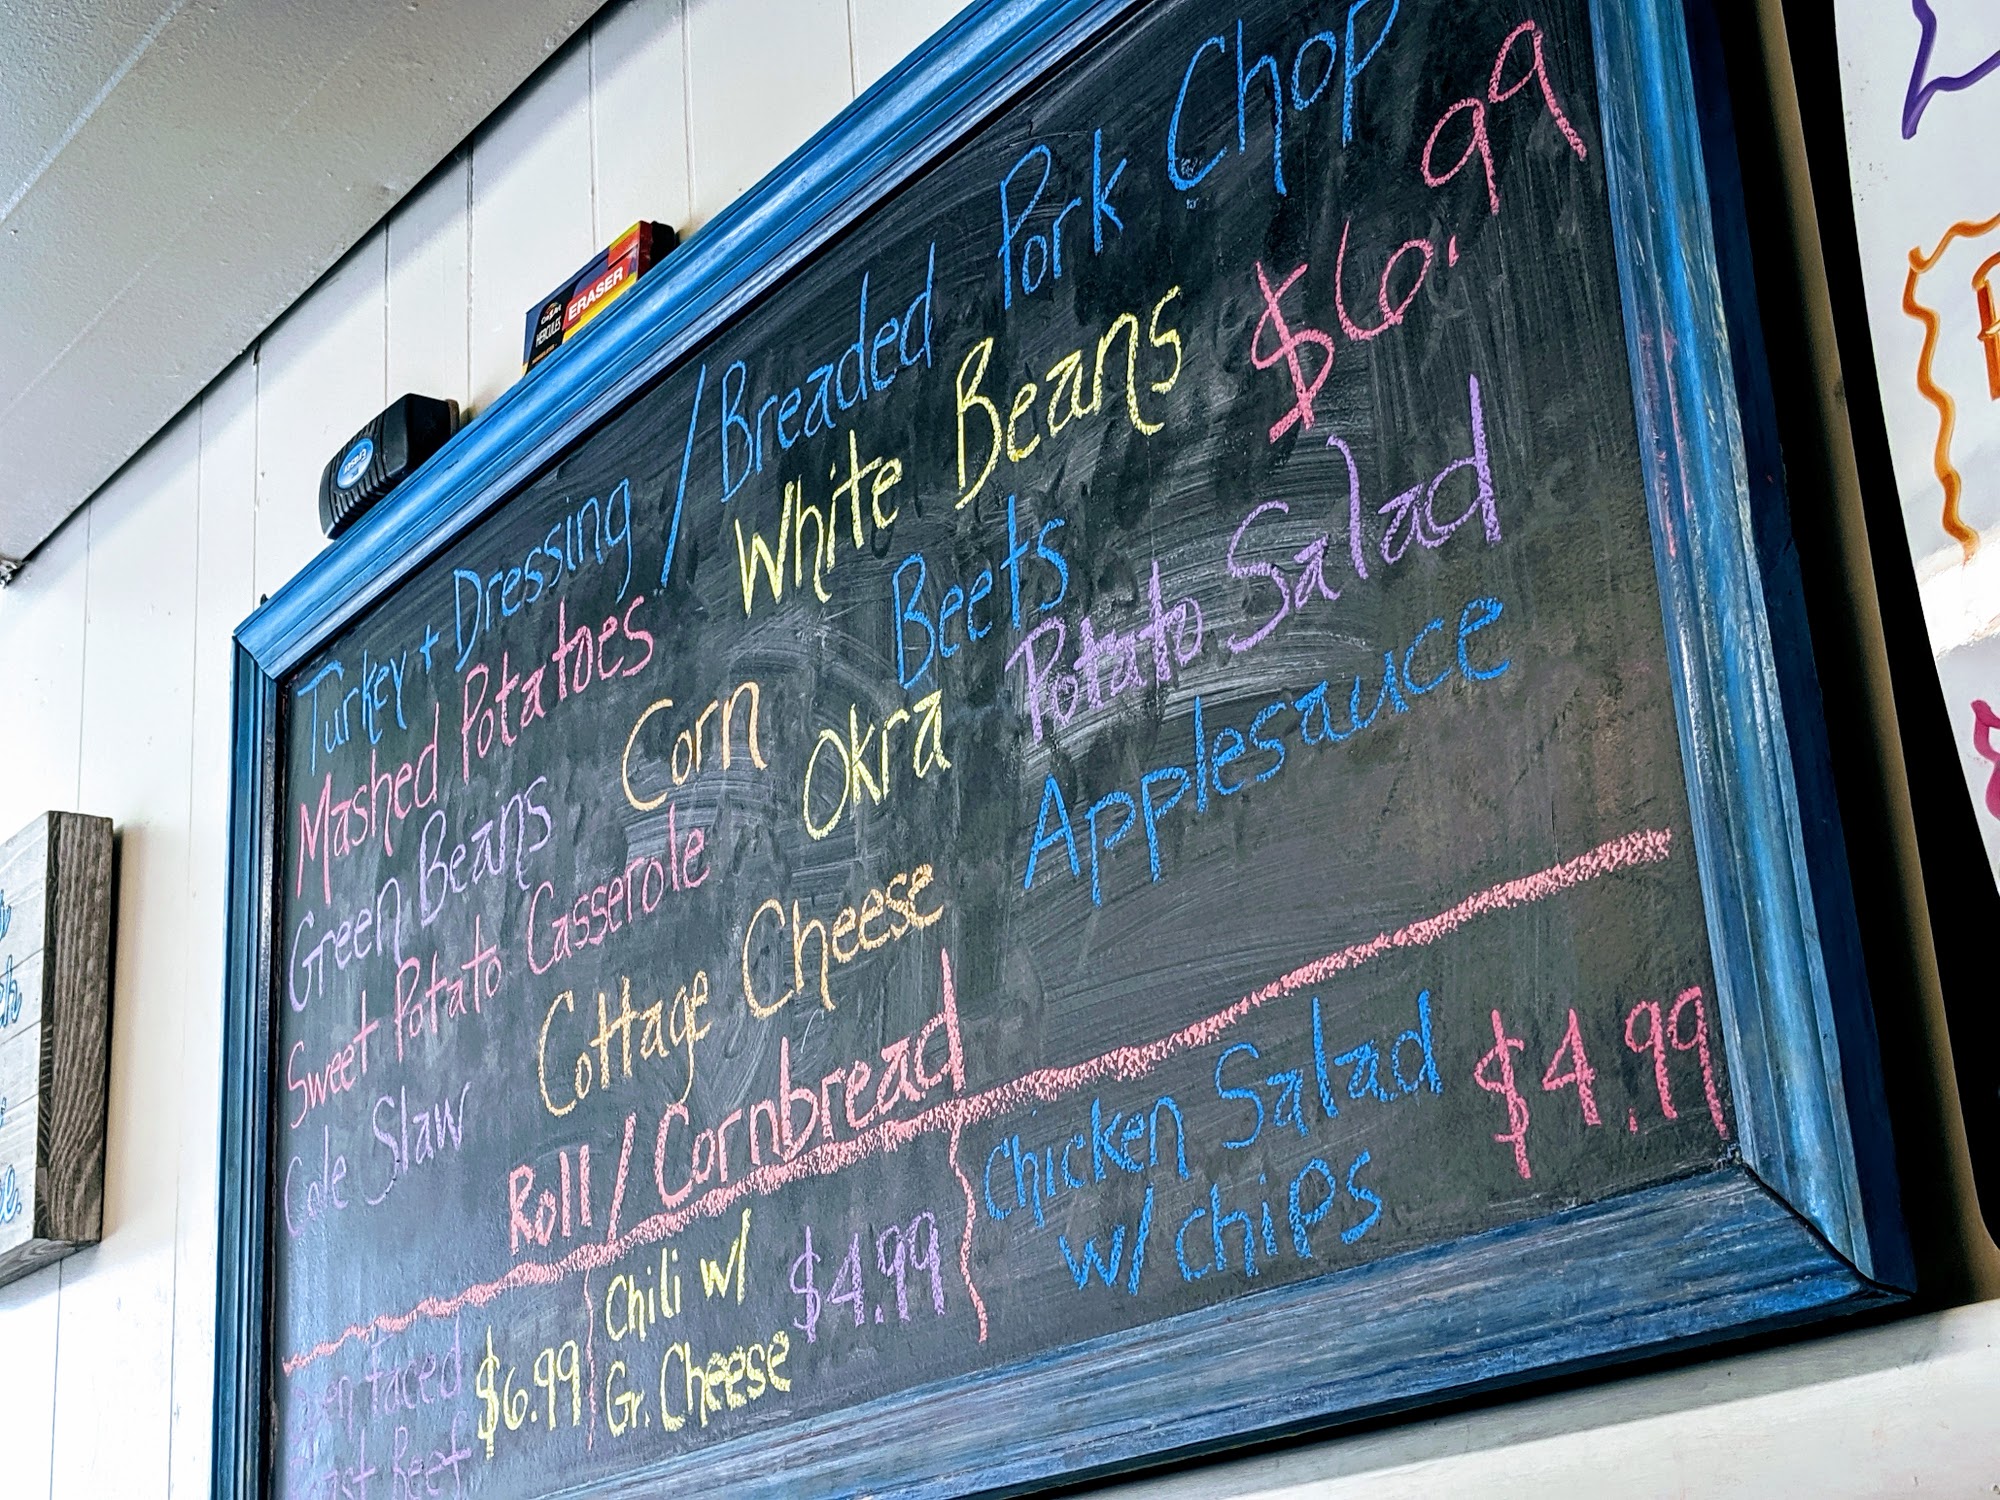 Turkey + Dressing / Breaded Pork Chop
Mashed Potatoes White Beans $6.99
Green Beans Corn Beets Potato Salad
Sweet Potato Casserole Okra Applesauce
Cole Slaw Cottage Cheese
Roll / Cornbread
Open Faced
Roast Beef
$6.99
Chili w/
Gr. Cheese
$4.99
Chicken Salad
w/ chips
$4.99
HERCULES
ERASER